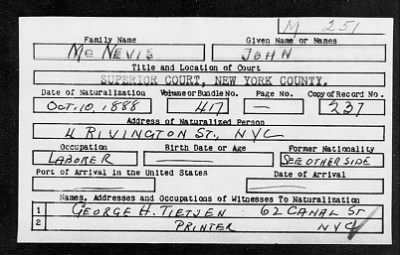 M 251
Family Name Given Name or Names
Mc NEVIS JOHN
Title and Location of Court
SUPERIOR COURT, NEW YORK COUNTY.
Date of Naturalization Volume or Bundle No. Page No. Copy of Record No.
OCT. 10, 1888 417 — 237
Address of Naturalized Person
4 RIVINGTON ST., NYC
Occupation Birth Date or Age Former Nationality
LABORER — SEE OTHER SIDE
Port of Arrival in the United States Date of Arrival
Names, Addresses and Occupations of Witnesses To Naturalization
1 GEORGE H. TIETJEN 62 CANAL ST
2 PRINTER NYC